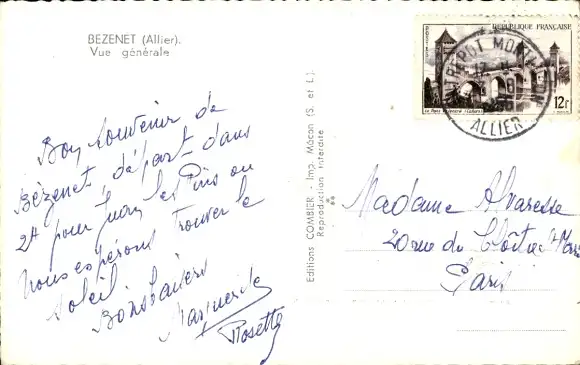 BEZENET (Allier).
Vue générale
Bon souvenir de
Bézenet, départ dans
2H pour Juan les Pins ou
nous espérons trouver le
soleil
Bons baisers
Marguerite
Rosette
Editions COMBIER - Imp. Mâcon (S. et L.)
Reproduction Interdite
POSTES
REPUBLIQUE FRANÇAISE
12F
ALLIER
Madame Alvaresse
20 rue du Cloître St Merri
Paris